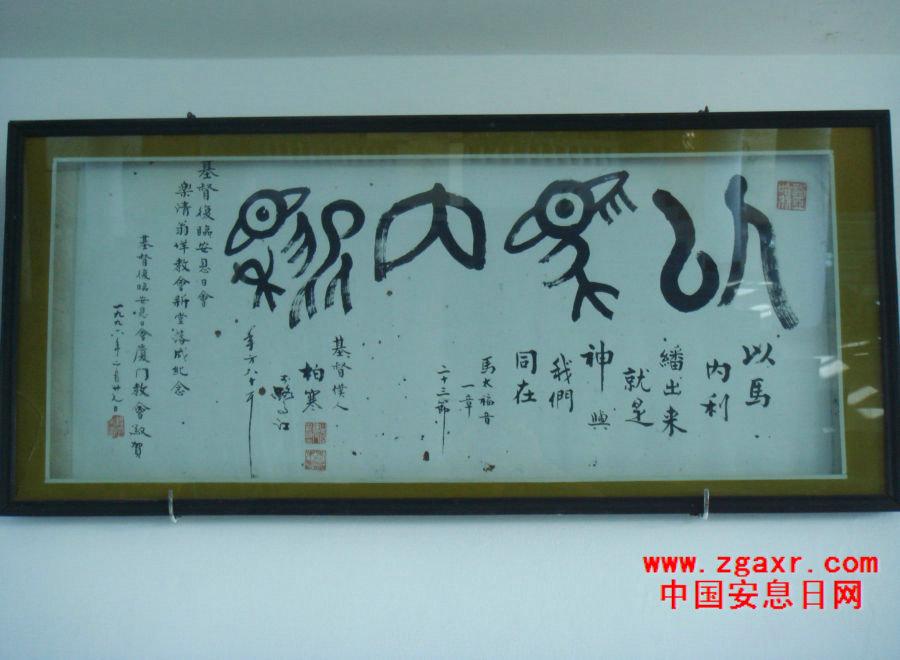 以馬內利
以馬
内利
繙出来
就是
神與
我們
同在
馬太福音
一章
二十三節
基督僕人
柏寒
于鷺江
年方八十
基督復臨安息日會
樂清翁垟教會新堂落成紀念
基督復臨安息日會廈門教會敬賀
一九九六年二月廿九日
www.zgaxr.com
中国安息日网